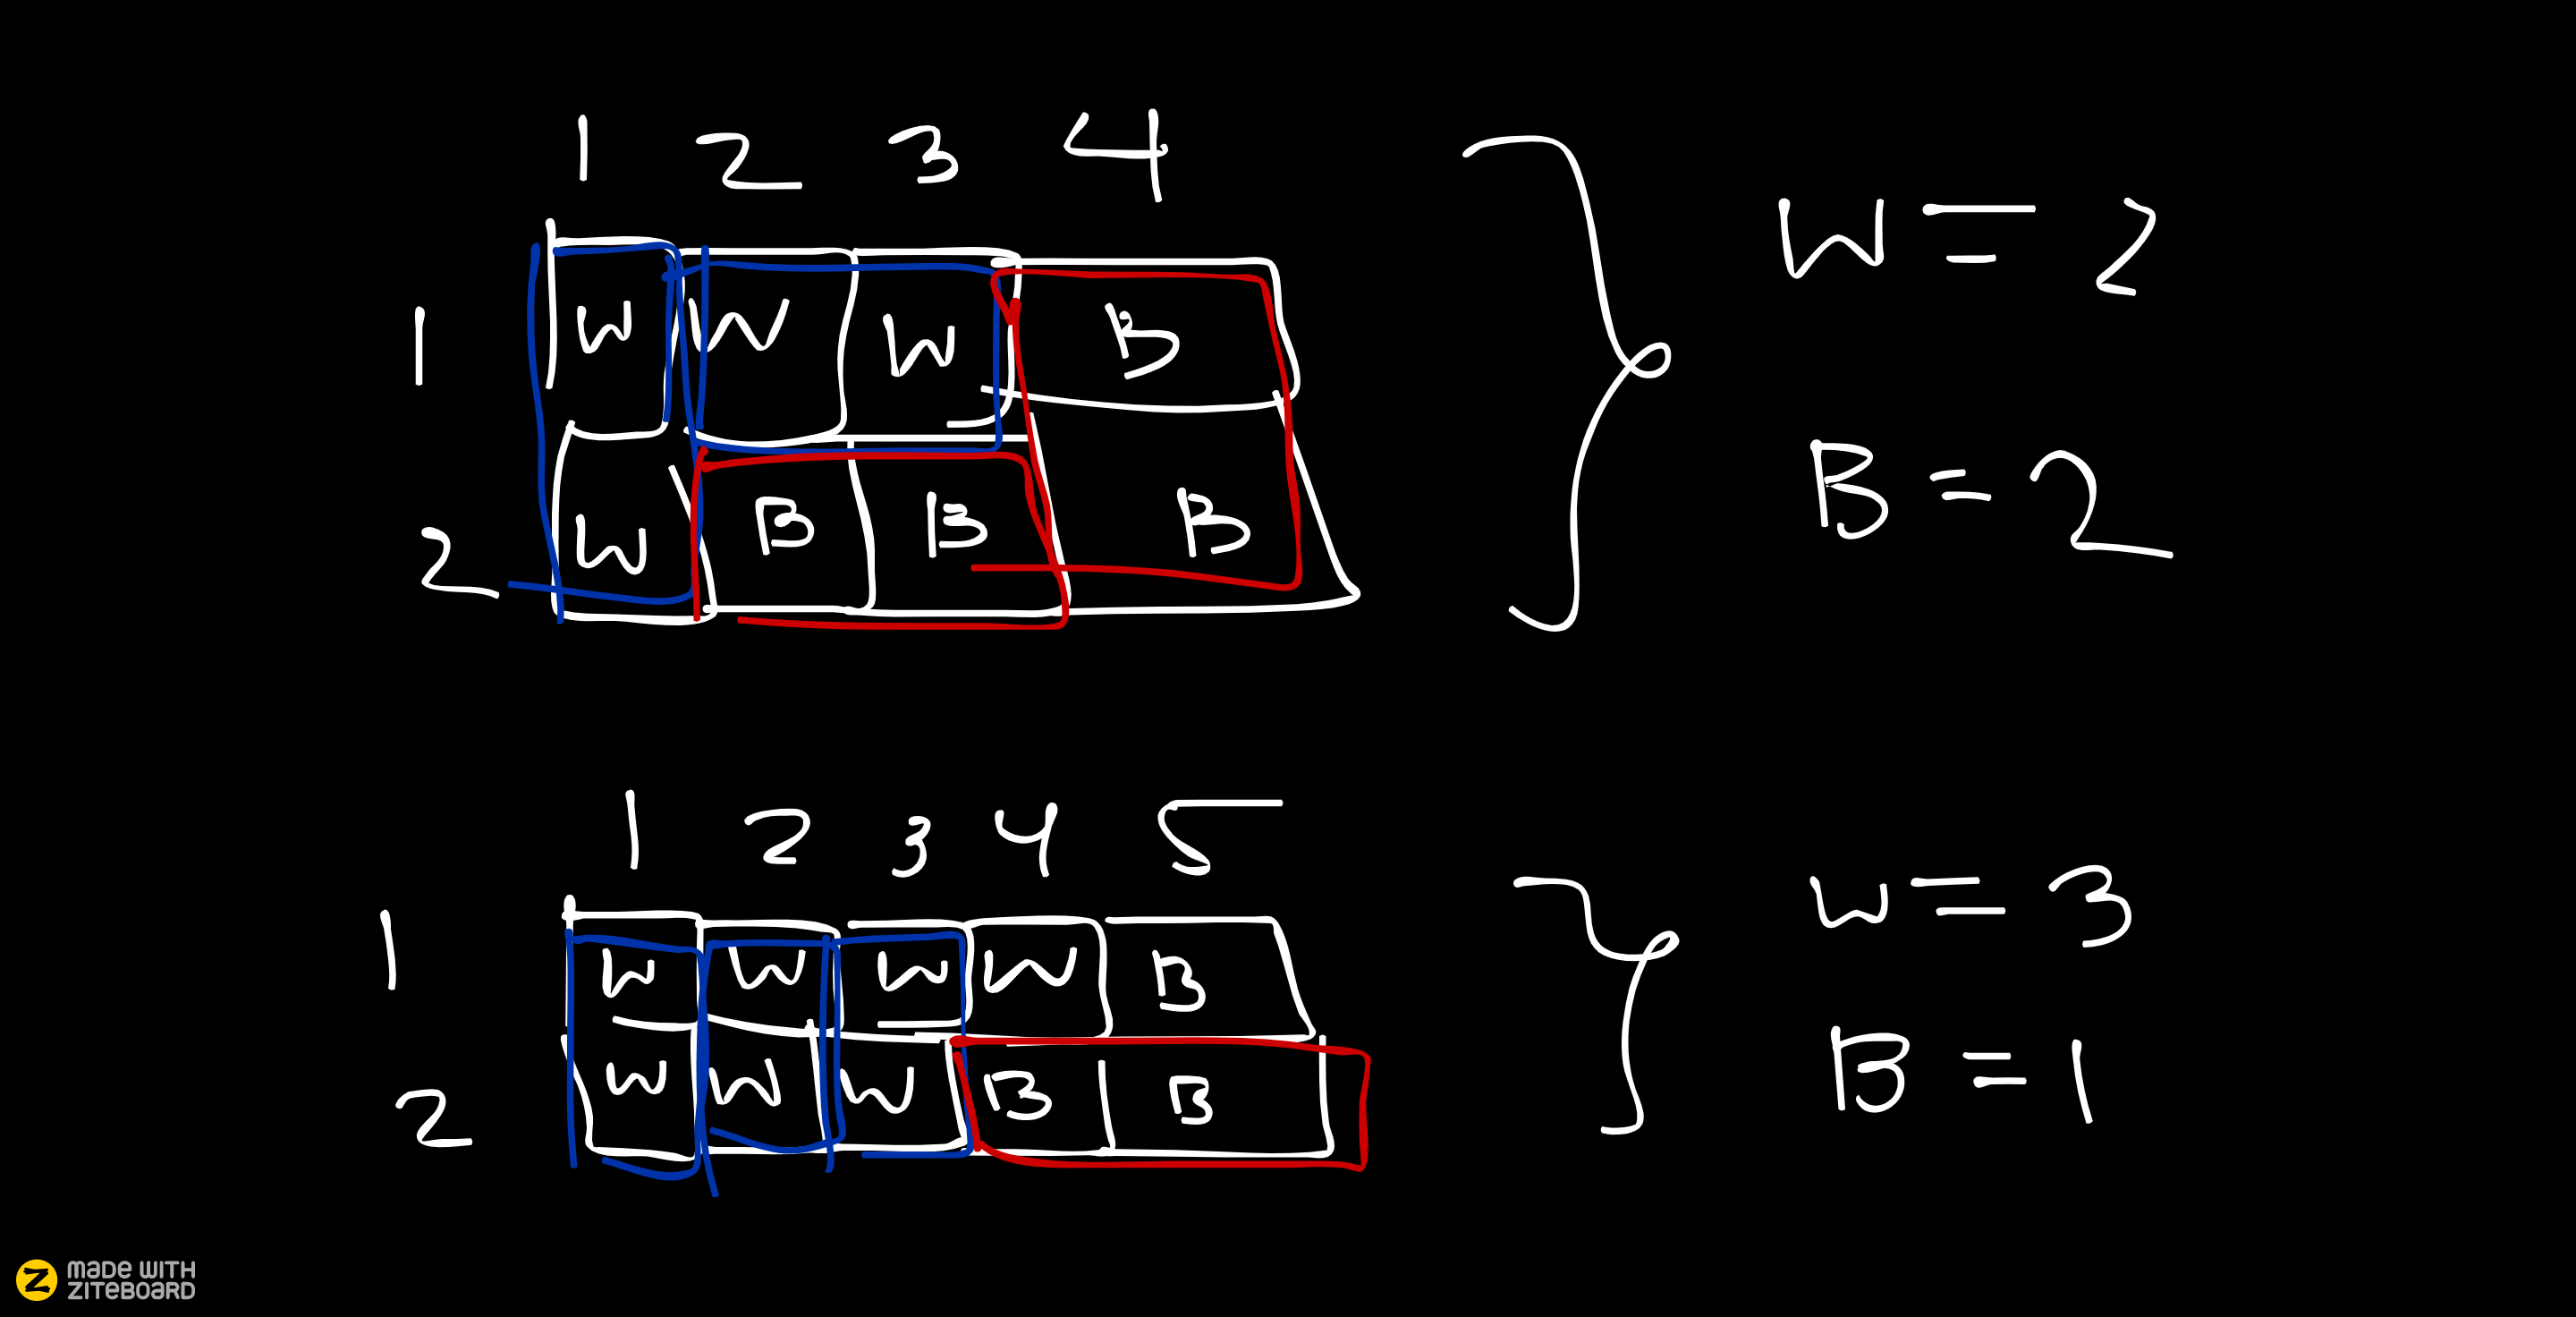 1 2 3 4
1 W W W B
2 W B B B
W = 2
B = 2
1 2 3 4 5
1 W W W W B
2 W W W B B
W = 3
B = 1
MADE WITH
ZITEBOARD